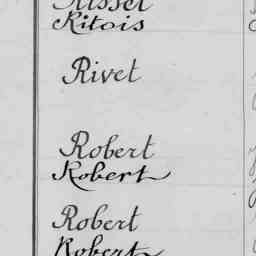 Risset
Ritois
Rivet
Robert
Robert
Robert
Robert